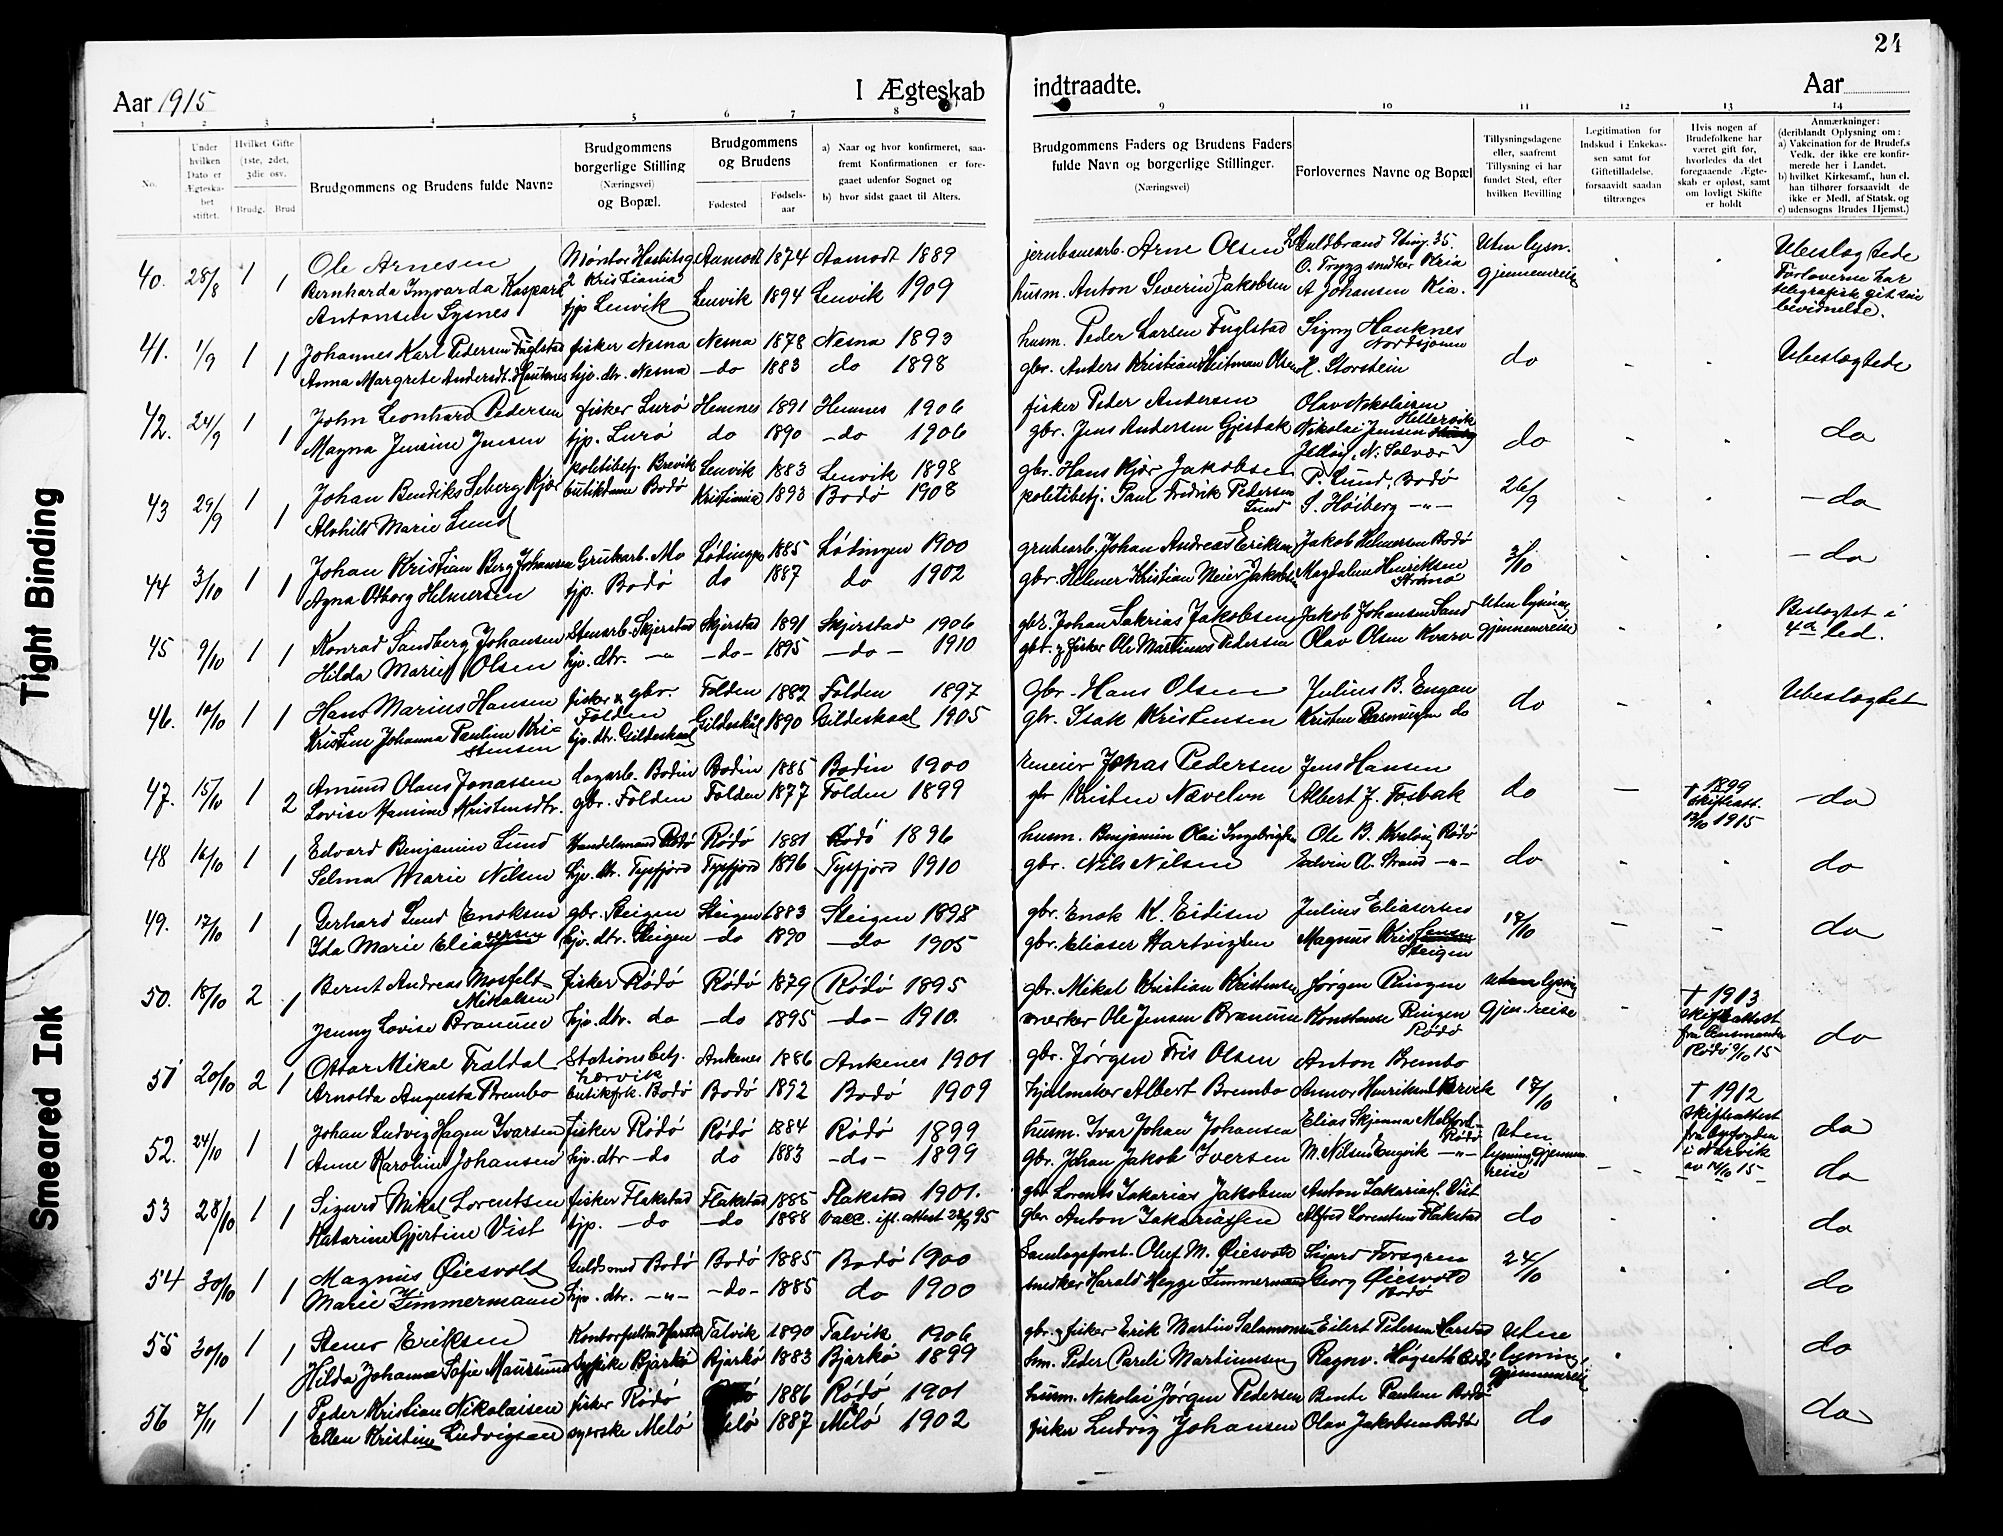 24
Aar 1915
I Ægteskab indtraadte.
Aar
1 2 3 4 5 6 7 8 9 10 11 12 13 14
No.
Under hvilken Dato er Ægteskabet stiftet.
Hvilket Gifte (1ste, 2det, 3die osv.
Brudg. Brud
Brudgommens og Brudens fulde Navne
Brudgommens borgerlige Stilling (Næringsvei) og Bopæl.
Brudgommens og Brudens
Fødested Fødselsaar
a) Naar og hvor konfirmeret, saafremt Konfirmationen er foregaaet udenfor Sognet og
b) hvor sidst gaaet til Alters.
Brudgommens Faders og Brudens Faders fulde Navn og borgerlige Stillinger.
(Næringsvei)
Forlovernes Navne og Bopæl
Tillysningsdagene eller, saafremt Tillysning ei har fundet Sted, efter hvilken Bevilling
Legitimation for Indskud i Enkekassen samt for Giftetilladelse, forsaavidt saadan tiltrænges
Hvis nogen af Brudefolkene har været gift før, hvorledes da det foregaaende Ægteskab er opløst, samt om lovligt Skifte er holdt
Anmærkninger:
(deriblandt Oplysning om:
a) Vakcination for de Brudef.s Vedk. der ikke ere konfirmerede her i Landet.
b) hvilket Kirkesamf., hun el. han tilhører forsaavidt de ikke er Medl. af Statsk. og
c) udensogns Brudes Hjemst.)
40. 28/8 1 1 Ole Arnesen Aamodt 1874 Aamodt 1889 jernbanearb. Arne Olsen Uten lysn. Ubeslegtede
Bernharda Ingvarda Kaspara 2 Kristiania O. Trygg snedker Kria gjennemreise Forloverne har
Antonsen Sysnes tjp Lenvik Lenvik 1894 Lenvik 1909 husm. Anton Severin Jakobsen A Johansen Kia. telegrafisk git sin bevidnelse.
41. 1/9 1 1 Johannes Karl Pedersen Fuglstad fisker Nesna Nesna 1878 Nesna 1893 husm. Peder Larsen Fuglstad Signy Hauknes Nordsjonen do Ubeslegtede
Anna Margrete Andersdt. Hauknes hjv. dtr. Nesna do 1883 do 1898 gbr. Anders Kristian Heitman Olsen H. Storstein
42. 24/9 1 1 John Leonhard Pedersen fisker Lurø Hemnes 1891 Hemnes 1906 fisker Peder Andersen Olav Nikolaisen do do
Magna Jensine Jensen tjp. Lurø do 1890 do 1906 gbr. Jens Andersen Gjesbak Nikolai Jensen
43 29/9 1 1 Johan Bendiks Seberg Kjær politibetj. Brevik Lenvik 1883 Lenvik 1898 gbr. Hans Kjær Jakobsen P. Lund, Bodø 26/9 do
Alvhild Marie Lund butikdame Bodø Kristiania 1893 Bodø 1908 politibetj. Paul Fredrik Pedersen Lund S. Høiberg -"-
44 3/10 1 1 Johan Kristian Berg Johansen Grubearb. Mo Lødingen 1885 Lødingen 1900 grubearb. Johan Andreas Eriksen Jakob Helmersen Bodø 3/10 do
Agna Otborg Helmersen tjp. Bodø do 1887 do 1902 gbr. Helmer Kristian Meier Jakobsen Magdalene Henriksen
45 9/10 1 1 Konrad Sandberg Johansen Stenarb. Skjerstad Skjerstad 1891 Skjerstad 1906 gbr. Johan Sakrias Jakobsen Jakob Johansen Sand Uten lysning Beslegtet i
Hilda Marie Olsen hjv. dtr. -"- do 1895 do 1910 gbr. og fisker Ole Martinus Pedersen Olav Olsen Kvarv gjennemreise 4de led.
46. 10/10 1 1 Hans Marius Hansen fisker & gbr. Folden Folden 1882 Folden 1897 Gbr. Hans Olsen Julius B. Engan do Ubeslegtet
Kristine Johanna Pauline Kristensen hjv. dtr. Gildeskaal Gildeskål 1890 Gildeskaal 1905 gbr. Isak Kristensen Kristen Rasmussen do
47. 15/10 1 2 Amund Olaus Jonassen Lagarb. Bodin Bodin 1885 Bodin 1900 Jonas Pedersen Jens Hansen do † 1899 do
Lovise Hansine Kristensdtr. gbr. Folden Folden 1877 Folden 1899 gbr Kristen Nævelsen Albert J. Fosbak skifteatt. 13/10 1915
48 16/10 1 1 Edvard Benjamin Lund Handelsmand Rødø Rødø 1881 Rødø 1896 husm. Benjamin Olai Ingebrigtsen Ole B. Kvalvig Rødø do do
Selma Marie Nilsen hjv. dtr. Tysfjord Tysfjord 1896 Tysfjord 1910 gbr. Nils Nilsen Edvin A. Strand -"-
49. 17/10 1 1 Gerhard Lund Enoksen gbr. Steigen Steigen 1883 Steigen 1898 gbr. Enok K. Eidisen Julius Eliasersen 17/10 do
Ida Marie Eliasersen hjv. dtr. Steigen do 1890 do 1905 gbr. Eliaser Hartvigsen Magnus Steigen
50. 18/10 2 1 Bernt Andreas Mosfelt Mikalsen fisker Rødø Rødø 1879 Rødø 1895 gbr. Mikal Kristian Kristensen Jørgen Ringen Uten lysning † 1913 do
Jenny Lovise Brannum hjv. dtr. do do 1895 do 1910. Ole Jensen Konstanse Ringen Rødø gjen. reise skifteattest fra lensmanden Rødø 9/10 15
51 20/10 2 1 Ottar Mikal Traldal Stationsbetj. Ankenes 1886 Ankenes 1901 gbr. Jørgen Fris Olsen Anton Brembo 17/10 † 1912
Arnolda Augusta Brembo butikfrk. Bodø Bodø 1892 Bodø 1909 hjulmaker Albert Brembo skifteattest fra byfogden i Narvik av 14/10 15
52. 24/10 1 1 Johan Ludvig Hagen Ivarsen fisker Rødø Rødø 1884 Rødø 1899 husm. Ivar Johan Johansen Elias Skjenna Melfjord Rødø Uten lysning, gjennemreise do
Anne Karoline Johansen hjv. dtr do do 1883 do 1899 gbr. Johan Jakob Iversen N. Nilsen Engvik -"- do
53 28/10 1 1 Sigurd Mikal Lorentsen fisker Flakstad Flakstad 1885 Flakstad 1901. gbr Lorents Zakarias Jakobsen Anton Zakariass. Vist do do
Katarine Gjertine Vist tjp. do do 1888 vacc. ifl. attest 95 gbr. Anton Zakariassen Alfred Lorentsen Flakstad
54 30/10 1 1 Magnus Øiesvold Guldsmed Bodø Bodø 1885 Bodø 1900 Oluf M. Øiesvold Sigurd Forsgren 24/10 do
Marie Zimmermann hjv. dtr. -"- do 1885 do 1900 snedker Harald Hegge Zimmermann Georg Øiesvold Bodø
55 30/10 1 1 Stener Eriksen Talvik 1890 Talvik 1906 gbr. og fisker Erik Martin Salamonsen Eilert Pedersen Harstad Uten lysning gjennemreise do
Hilda Johanna Sofie Maursund sypike Bjarkø Bjarkø 1883 Bjarkø 1899 hm. Peder Pareli Martinussen Ragnv. Høgseth Bodø
56 7/11 1 1 Peder Kristian Nikolaisen fisker Rødø 1886 Rødø 1901 husm. Nikolai Jørgen Pedersen Bente Paulsen Bodø do do
Ellen Kristine Ludvigsen syerske Melø 1887 Melø 1902 fisker Ludvig Johansen Olav Jakobsen Bodø
Tight Binding
Smeared Ink